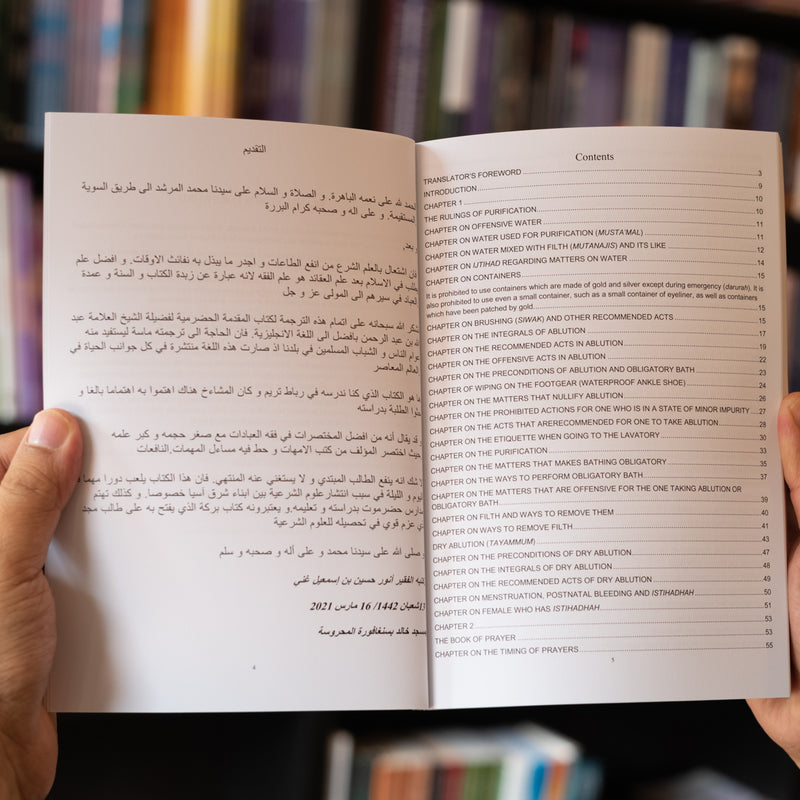 التقديم
الحمد لله على نعمه الباهرة. و الصلاة و السلام على سيدنا محمد المرشد الى طريق السوية
المستقيمة. و على اله و صحبه كرام البررة
و بعد,
فان اشتغال بالعلم الشرع من انفع الطاعات و اجدر ما يبذل به نفائث الاوقات. و افضل علم
يطلب في الاسلام بعد علم العقائد هو علم الفقه لانه عبارة عن زبدة الكتاب و السنة و عمدة
العباد في سيرهم الى المولى عز و جل
الله سبحانه على اتمام هذه الترجمة لكتاب المقدمة الحضرمية لفضيلة الشيخ العلامة عبد
الله بن عبد الرحمن بافضل الى اللغة الانجليزية. فان الحاجة الى ترجمته ماسة ليستفيد منه
عوام الناس و الشباب المسلمين في بلدنا اذ صارت هذه اللغة منتشرة في كل جوانب الحياة في
العالم المعاصر
هو الكتاب الذي كنا ندرسه في رباط تريم و كان المشاءخ هناك اهتموا به اهتماما بالغا و
الطلبة بدراسته
و قد يقال أنه من افضل المختصرات في فقه العبادات مع صغر حجمه و كبر علمه
حيث اختصر المؤلف من كتب الامهات و حط فيه مساءل المهمات,النافعات
لا شك انه ينفع الطالب المبتدي و لا يستغني عنه المنتهي. فان هذا الكتاب يلعب دورا مهما
اليوم و الليلة في سبب انتشارعلوم الشرعية بين ابناء شرق آسيا خصوصا. و كذلك تهتم
مدارس حضرموت بدراسته و تعليمه.و يعتبرونه كتاب بركة الذي يفتح به على طالب مجد
ذي عزم قوي في تحصيله للعلوم الشرعية
و صلى الله على سيدنا محمد و على أله و صحبه و سلم
كتبه الفقير أنور حسين بن إسمعيل غني
شعبان 1442/ 16 مارس 2021
مسجد خالد بسنغافورة المحروسة
4
Contents
TRANSLATOR'S FOREWORD 3
INTRODUCTION 9
CHAPTER 1 10
THE RULINGS OF PURIFICATION 10
CHAPTER ON OFFENSIVE WATER 11
CHAPTER ON WATER USED FOR PURIFICATION (MUSTA'MAL) 11
CHAPTER ON WATER MIXED WITH FILTH (MUTANAJIS) AND ITS LIKE 12
CHAPTER ON IJTIHAD REGARDING MATTERS ON WATER 14
CHAPTER ON CONTAINERS 15
It is prohibited to use containers which are made of gold and silver except during emergency (darurah). It is
also prohibited to use even a small container, such as a small container of eyeliner, as well as containers
which have been patched by gold 15
CHAPTER ON BRUSHING (SIWAK) AND OTHER RECOMMENDED ACTS 15
CHAPTER ON THE INTEGRALS OF ABLUTION 17
CHAPTER ON THE RECOMMENDED ACTS IN ABLUTION 19
CHAPTER ON THE OFFENSIVE ACTS IN ABLUTION 22
CHAPTER ON THE PRECONDITIONS OF ABLUTION AND OBLIGATORY BATH 23
CHAPTER OF WIPING ON THE FOOTGEAR (WATERPROOF ANKLE SHOE) 24
CHAPTER ON THE MATTERS THAT NULLIFY ABLUTION 26
CHAPTER ON THE PROHIBITED ACTIONS FOR ONE WHO IS IN A STATE OF MINOR IMPURITY 27
CHAPTER ON THE ACTS THAT ARERECOMMENDED FOR ONE TO TAKE ABLUTION 28
CHAPTER ON THE ETIQUETTE WHEN GOING TO THE LAVATORY 30
CHAPTER ON THE PURIFICATION 33
CHAPTER ON THE MATTERS THAT MAKES BATHING OBLIGATORY 35
CHAPTER ON THE WAYS TO PERFORM OBLIGATORY BATH 37
CHAPTER ON THE MATTERS THAT ARE OFFENSIVE FOR THE ONE TAKING ABLUTION OR
OBLIGATORY BATH 39
CHAPTER ON FILTH AND WAYS TO REMOVE THEM 40
CHAPTER ON WAYS TO REMOVE FILTH 41
DRY ABLUTION (TAYAMMUM) 43
CHAPTER ON THE PRECONDITIONS OF DRY ABLUTION 47
CHAPTER ON THE INTEGRALS OF DRY ABLUTION 48
CHAPTER ON THE RECOMMENDED ACTS OF DRY ABLUTION 49
CHAPTER ON MENSTRUATION, POSTNATAL BLEEDING AND ISTIHADHAH 50
CHAPTER ON FEMALE WHO HAS ISTIHADHAH 51
CHAPTER 2 53
THE BOOK OF PRAYER 53
CHAPTER ON THE TIMING OF PRAYERS 55
5